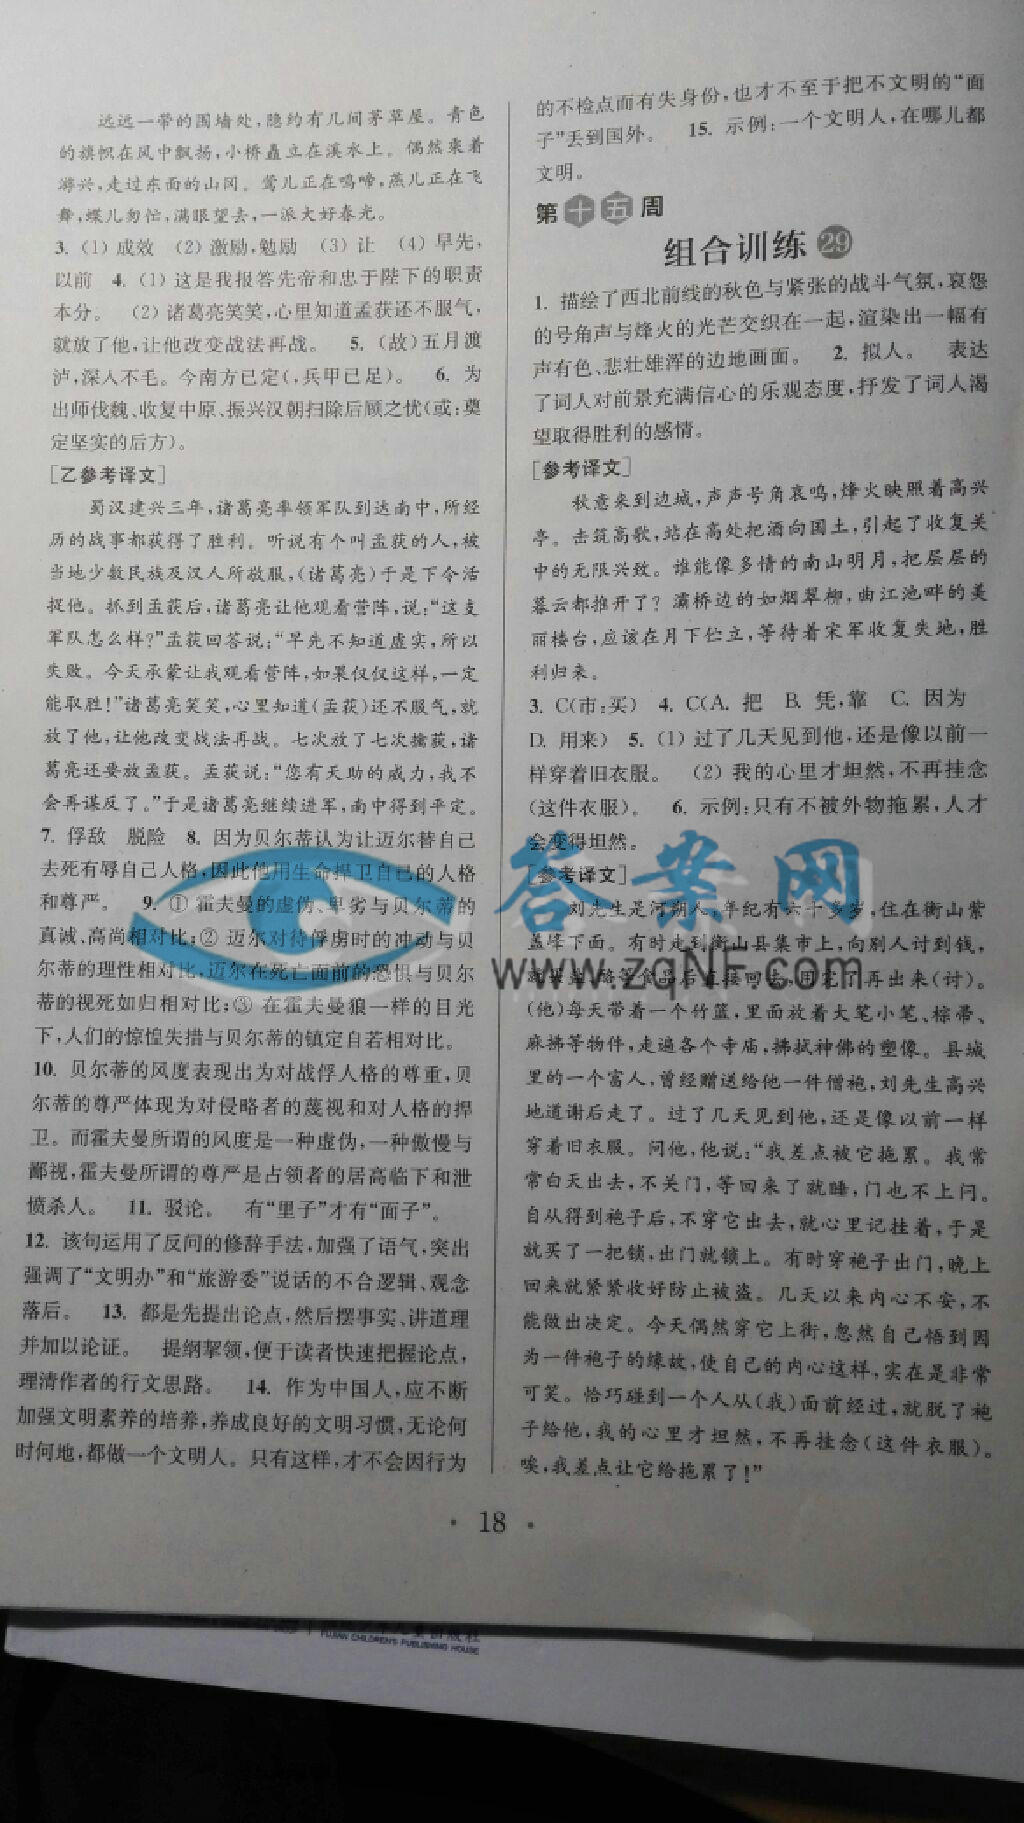 远远一带的围墙处,隐约有几间茅草屋。青色
的旗帜在风中飘扬,小桥矗立在溪水上。偶然乘着
游兴,走过东面的山冈。莺儿正在鸣啼,燕儿正在飞
舞,蝶儿匆忙,满眼望去,一派大好春光。
3. (1) 成效 (2) 激励,勉励 (3) 让 (4) 早先,
以前 4. (1) 这是我报答先帝和忠于陛下的职责
本分。 (2) 诸葛亮笑笑,心里知道孟获还不服气,
就放了他,让他改变战法再战。 5. (故)五月渡
泸,深入不毛。今南方已定(,兵甲已足)。 6. 为
出师伐魏、收复中原、振兴汉朝扫除后顾之忧(或:奠
定坚实的后方)。
[乙参考译文]
蜀汉建兴三年,诸葛亮率领军队到达南中,所经
历的战事都获得了胜利。听说有个叫孟获的人,被
当地少数民族及汉人所敬服,(诸葛亮)于是下令活
捉他。抓到孟获后,诸葛亮让他观看营阵,说:“这支
军队怎么样?”孟获回答说:“早先不知道虚实,所以
失败。今天承蒙让我观看营阵,如果仅仅这样,一定
能取胜!”诸葛亮笑笑,心里知道(孟获)还不服气,就
放了他,让他改变战法再战。七次放了七次擒获,诸
葛亮还要放孟获。孟获说:“您有天助的威力,我不
会再谋反了。”于是诸葛亮继续进军,南中得到平定。
7. 俘敌 脱险 8. 因为贝尔蒂认为让迈尔替自己
去死有辱自己人格,因此他用生命捍卫自己的人格
和尊严。 9. ① 霍夫曼的虚伪、卑劣与贝尔蒂的
真诚、高尚相对比;② 迈尔对待俘虏时的冲动与贝
尔蒂的理性相对比,迈尔在死亡面前的恐惧与贝尔
蒂的视死如归相对比;③ 在霍夫曼狼一样的目光
下,人们的惊惶失措与贝尔蒂的镇定自若相对比。
10. 贝尔蒂的风度表现出为对战俘人格的尊重,贝
尔蒂的尊严体现为对侵略者的蔑视和对人格的捍
卫。而霍夫曼所谓的风度是一种虚伪,一种傲慢与
鄙视,霍夫曼所谓的尊严是占领者的居高临下和泄
愤杀人。 11. 驳论。 有“里子”才有“面子”。
12. 该句运用了反问的修辞手法,加强了语气,突出
强调了“文明办”和“旅游委”说话的不合逻辑、观念
落后。 13. 都是先提出论点,然后摆事实、讲道理
并加以论证。 提纲挈领,便于读者快速把握论点,
理清作者的行文思路。 14. 作为中国人,应不断
加强文明素养的培养,养成良好的文明习惯,无论何
时何地,都做一个文明人。只有这样,才不会因行为
的不检点而有失身份,也才不至于把不文明的“面
子”丢到国外。 15. 示例:一个文明人,在哪儿都
文明。
第十五周
组合训练 29
1. 描绘了西北前线的秋色与紧张的战斗气氛,哀怨
的号角声与烽火的光芒交织在一起,渲染出一幅有
声有色、悲壮雄浑的边地画面。 2. 拟人。 表达
了词人对前景充满信心的乐观态度,抒发了词人渴
望取得胜利的感情。
[参考译文]
秋意来到边城,声声号角哀鸣,烽火映照着高兴
亭。击筑高歌,站在高处把酒向国土,引起了收复关
中的无限兴致。谁能像多情的南山明月,把层层的
暮云都推开了?灞桥边的如烟翠柳,曲江池畔的美
丽楼台,应该在月下伫立,等待着宋军收复失地,胜
利归来。
3. C(市:买) 4. C(A. 把 B. 凭,靠 C. 因为
D. 用来) 5. (1) 过了几天见到他,还是像以前一
样穿着旧衣服。 (2) 我的心里才坦然,不再挂念
(这件衣服)。 6. 示例:只有不被外物拖累,人才
会变得坦然。
[参考译文]
刘先生是河朔人,年纪有六十多岁,住在衡山紫
盖峰下面。有时走到衡山县集市上,向别人讨到钱,
就买盐、酪等食品后直接回去,用完了再出来(讨)。
(他)每天带着一个竹篮,里面放着大笔小笔、棕蒂、
麻拂等物件,走遍各个寺庙,拂拭神佛的塑像。县城
里的一个富人,曾经赠送给他一件僧袍,刘先生高兴
地道谢后走了。过了几天见到他,还是像以前一样
穿着旧衣服。问他,他说:“我差点被它拖累。我常
常白天出去,不关门,等回来了就睡,门也不上闩。
自从得到袍子后,不穿它出去,就心里记挂着,于是
就买了一把锁,出门就锁上。有时穿袍子出门,晚上
回来就紧紧收好防止被盗。几天以来内心不安,不
能做出决定。今天偶然穿它上街,忽然自己悟到因
为一件袍子的缘故,使自己的内心这样,实在是非常
可笑。恰巧碰到一个人从(我)面前经过,就脱了袍
子给他,我的心里才坦然,不再挂念(这件衣服)。
唉,我差点让它给拖累了!”
· 18 ·
答案网
www.zqNF.com
少年儿童出版社
FUJIAN CHILDREN'S PUBLISHING HOUSE
答案网
www.zqNF.com